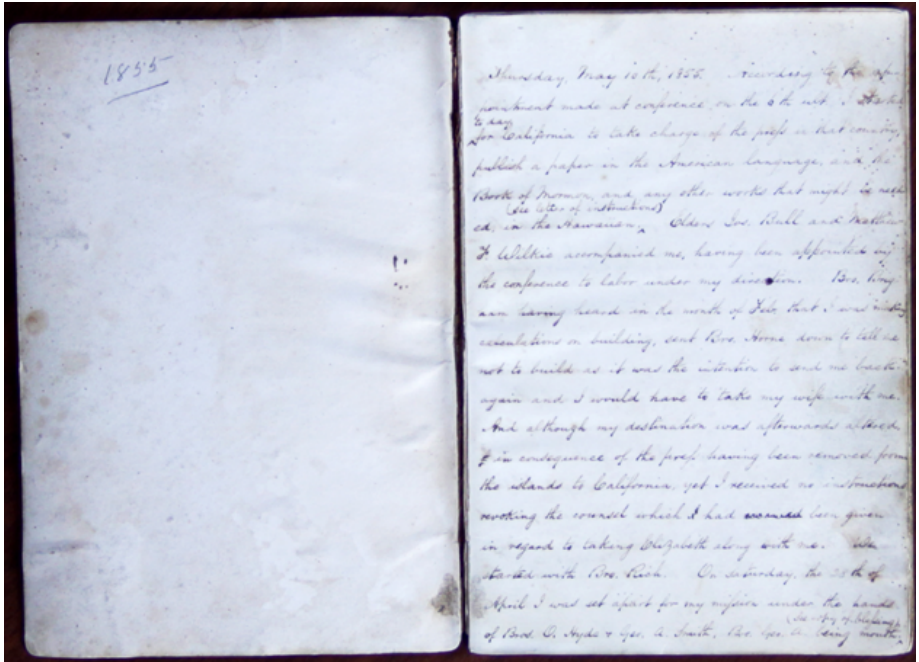 1855
Thursday, May 10th, 1855. According to the ap-
pointment made at conference on the 6th ult. I started
to day
for California to take charge of the press in that country,
publish a paper in the American language, and the
Book of Mormon, and any other works that might be need-
(See letter of instructions)
ed, in the Hawaiian. Elders Jos. Bull and Matthew
F Wilkie accompanied me, having been appointed by
the conference to labor under my direction. Bro. Brig-
ham having heard in the month of Feb. that I was making
calculations on building, sent Bro. Horne down to tell me
not to build as it was the intention to send me back
again and I would have to take my wife with me.
And although my destination was afterwards altered
in consequence of the press having been removed from
the islands to California, yet I received no instructions
revoking the counsel which I had been given
in regard to taking Elizabeth along with me. We
started with Bro. Rich. On Saturday, the 28th of
April I was set apart for my mission under the hands
(See copy of blessing)
of Bros. O. Hyde & Geo. A. Smith, Bro. Geo. A. being mouth.